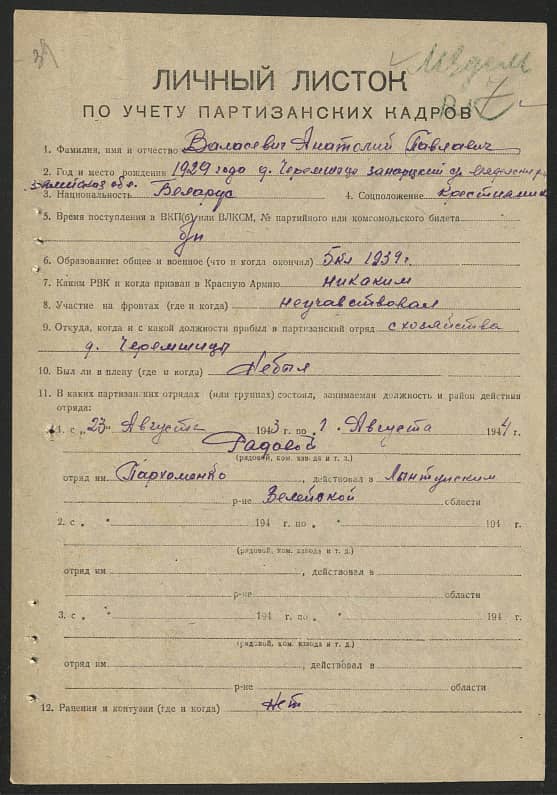 ЛИЧНЫЙ ЛИСТОК
ПО УЧЕТУ ПАРТИЗАНСКИХ КАДРОВ
1. Фамилия, имя и отчество Валасевич Анатолий Павлавич
2. Год и место рождения 1929 года д. Черемшица
3. Национальность Беларус 4. Соцположение Крестианин
5. Время поступления в ВКП(б) или ВЛКСМ, № партийного или комсомольского билета
б/п
6. Образование: общее и военное (что и когда окончил) 5 кл 1939 г.
7. Каким РВК и когда призван в Красную Армию никаким
8. Участие на фронтах (где и когда) неучавствовал
9. Откуда, когда и с какой должности прибыл в партизанский отряд с хозяйства
д. Черемшицы
10. Был ли в плену (где и когда) Небыл
11. В каких партизанских отрядах (или группах) состоял, занимаемая должность и район действия
отряда:
1. с „23" Августа 1943 г. по 1 . Августа 1944 г.
Радовой
(рядовой, ком. взвода и т. д.)
отряд им Пархоменко , действовал в Лынтупским
р-не Велейской области
2. с „ " 194 г. по „ " 194 г.
(рядовой, ком. взвода и т. д.)
отряд им. , действовал в
р-не области
3. с „ " 194 г. по „ " 194 г.
(рядовой, ком. взвода и т. д.)
отряд им. , действовал в
р-не области
12. Ранения и контузии (где и когда) Нет